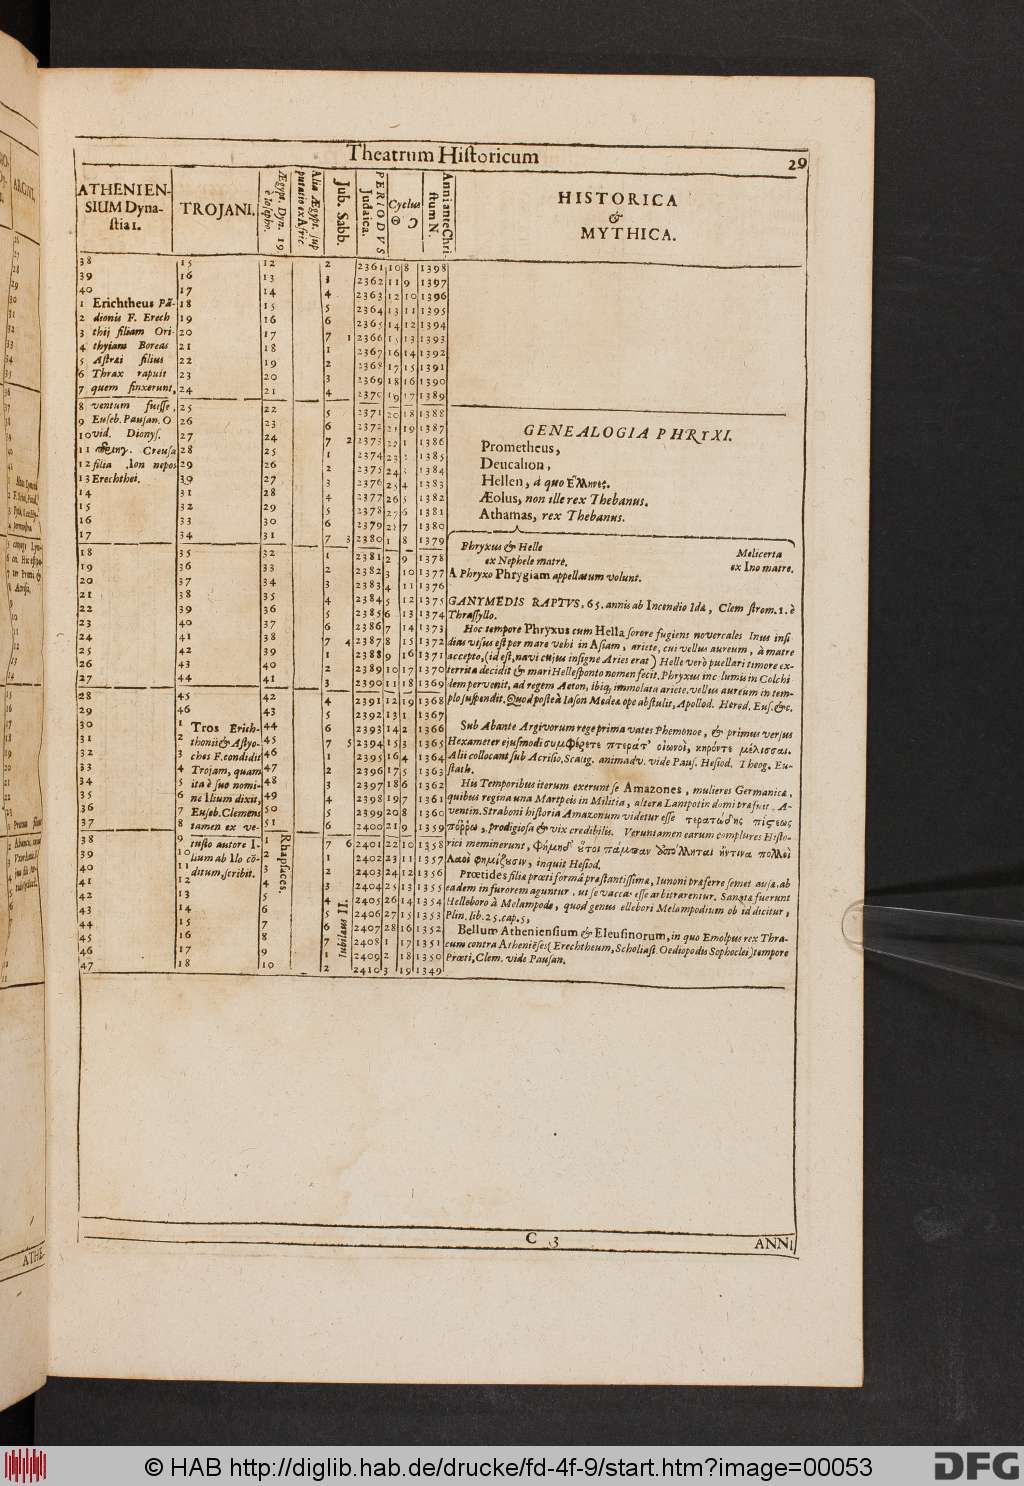 Theatrum Historicum
29
ATHENIEN-
SIUM Dyna-
stia 1.
TROJANI.
Ægypt. Dyn. 19
è Iosepho.
Alia Ægypt. sup
putatio ex Afric.
Jub. Sabb.
PERIODVS
Judaica.
Cyclus
☉ ☽
Anni ante Chri-
stum N.
HISTORICA
&
MYTHICA.
38 15 12 2 2361 10 8 1398
39 16 13 3 2362 11 9 1397
40 17 14 4 2363 12 10 1396
1 Erichtheus Pã- 18 15 5 2364 13 11 1395
2 dionis F. Erech 19 16 6 2365 14 12 1394
3 thij filiam Ori- 20 17 7 1 2366 15 13 1393
4 thyiam Boreas 21 18 1 2367 16 14 1392
5 Astræi filius 22 19 2 2368 17 15 1391
6 Thrax rapuit 23 20 3 2369 18 16 1390
7 quem finxerunt, 24 21 4 2370 19 17 1389
8 ventum fuisse, 25 22 5 2371 20 18 1388
9 Euseb. Pausan. O 26 23 6 2372 21 19 1387
10 vid. Dionys. 27 24 7 2 2373 22 1 1386
11 Creusa 28 25 1 2374 23 1385
12 filia Ion nepos 29 26 2 2375 24 1384
13 Erechthei. 30 27 3 2376 25 4 1383
14 31 28 4 2377 26 5 1382
15 32 29 5 2378 27 6 1381
16 33 30 6 2379 28 7 1380
17 34 31 7 3 2380 1 8 1379
18 35 32 1 2381 2 9 1378
19 36 33 2 2382 3 10 1377
20 37 34 3 2383 4 11 1376
21 38 35 4 2384 5 12 1375
22 39 36 5 2385 6 13 1374
23 40 37 6 2386 7 14 1373
24 41 38 7 4 2387 8 15 1372
25 42 39 1 2388 9 16 1371
26 43 40 2 2389 10 17 1370
27 44 41 3 2390 11 18 1369
28 45 42 4 2391 12 19 1368
29 46 43 5 2392 13 1 1367
30 1 Tros Erich- 44 6 2393 14 2 1366
31 2 thonii & Astyo- 45 7 5 2394 15 3 1365
32 3 ches F. condidit 46 1 2395 16 4 1364
33 4 Trojam, quam 47 2 2396 17 5 1363
34 5 ita è suo nomi- 48 3 2397 18 6 1362
35 6 ne Ilium dixit, 49 4 2398 19 7 1361
36 7 Euseb. Clemens 50 5 2399 20 8 1360
37 8 tamen ex ve- 51 6 2400 21 9 1359
38 9 tusto autore I- 1 7 6 2401 22 10 1358
39 10 lium ab Ilo cõ- 2 1 2402 23 11 1357
40 11 ditum, scribit. 3 2 2403 24 12 1356
41 12 4 3 2404 25 13 1355
42 13 5 4 2405 26 14 1354
43 14 6 5 2406 27 15 1353
44 15 7 6 2407 28 16 1352
45 16 8 7 2408 1 17 1351
46 17 9 1 2409 2 18 1350
47 18 10 2 2410 3 19 1349
Rhapsaces.
Iubilæus II.
GENEALOGIA PHRYXI.
Prometheus,
Deucalion,
Hellen, à quo Ἕλληνες.
Æolus, non ille rex Thebanus.
Athamas, rex Thebanus.
Phryxus & Helle
ex Nephele matre.
Melicerta
ex Ino matre.
A Phryxo Phrygiam appellatum volunt.
GANYMEDIS RAPTVS, 65. annis ab Incendio Idæ, Clem strom. 1. è
Thrasyllo.
Hoc tempore Phryxus cum Hella sorore fugiens novercales Inus insi
dias visus est per mare vehi in Asiam, ariete, cui vellus aureum, à matre
accepto, (id est, navi cujus insigne Aries erat) Helle verò puellari timore ex-
territa decidit & mari Hellesponto nomen fecit. Phryxus inc lumis in Colchi
dem pervenit, ad regem Æeton, ibiq; immolata ariete, vellus aureum in tem-
plo suspendit. Quod posteà Iason Medeæ ope abstulit, Apollod. Herod. Eus. &c.
Sub Abante Argivorum rege prima vates Phemonoe, & primus versus
Hexameter ejusmodi συμφέρετε πτερά τ' οἰωνοὶ, κηρόν τε μέλισσαι.
Alii collocant sub Acrisio, Scalig. animadv. vide Paus. Hesiod. Theog. Eu-
stath.
His Temporibus iterum exerunt se Amazones, mulieres Germanicæ,
quibus regina una Martpeis in Militia, altera Lampotin domi præfuit. A-
ventin. Straboni historia Amazonum videtur esse τερατώδης πίστεως
πόῤῥω, prodigiosa & vix credibilis. Veruntamen earum complures Histo-
rici meminerunt,
inquit Hesiod.
Prœtides filiæ prœti formâ præstantissimæ, Iunoni præferre semet ausæ. ab
eadem in furorem aguntur, ut se vaccas esse arbitrarentur. Sanatæ fuerunt
Helleboro à Melampode, quod genus ellebori Melampodium ob id dicitur,
Plin. lib. 25. cap. 5,
Bellum Atheniensium & Eleusinorum, in quo Emolpus rex Thra-
cum contra Atheniẽses (Erechtheum, Scholiast. Oediopodis Sophoclei) tempore
Prœti, Clem. vide Pausan.
C 3
ANNI
ATHE-
© HAB http://diglib.hab.de/drucke/fd-4f-9/start.htm?image=00053
DFG